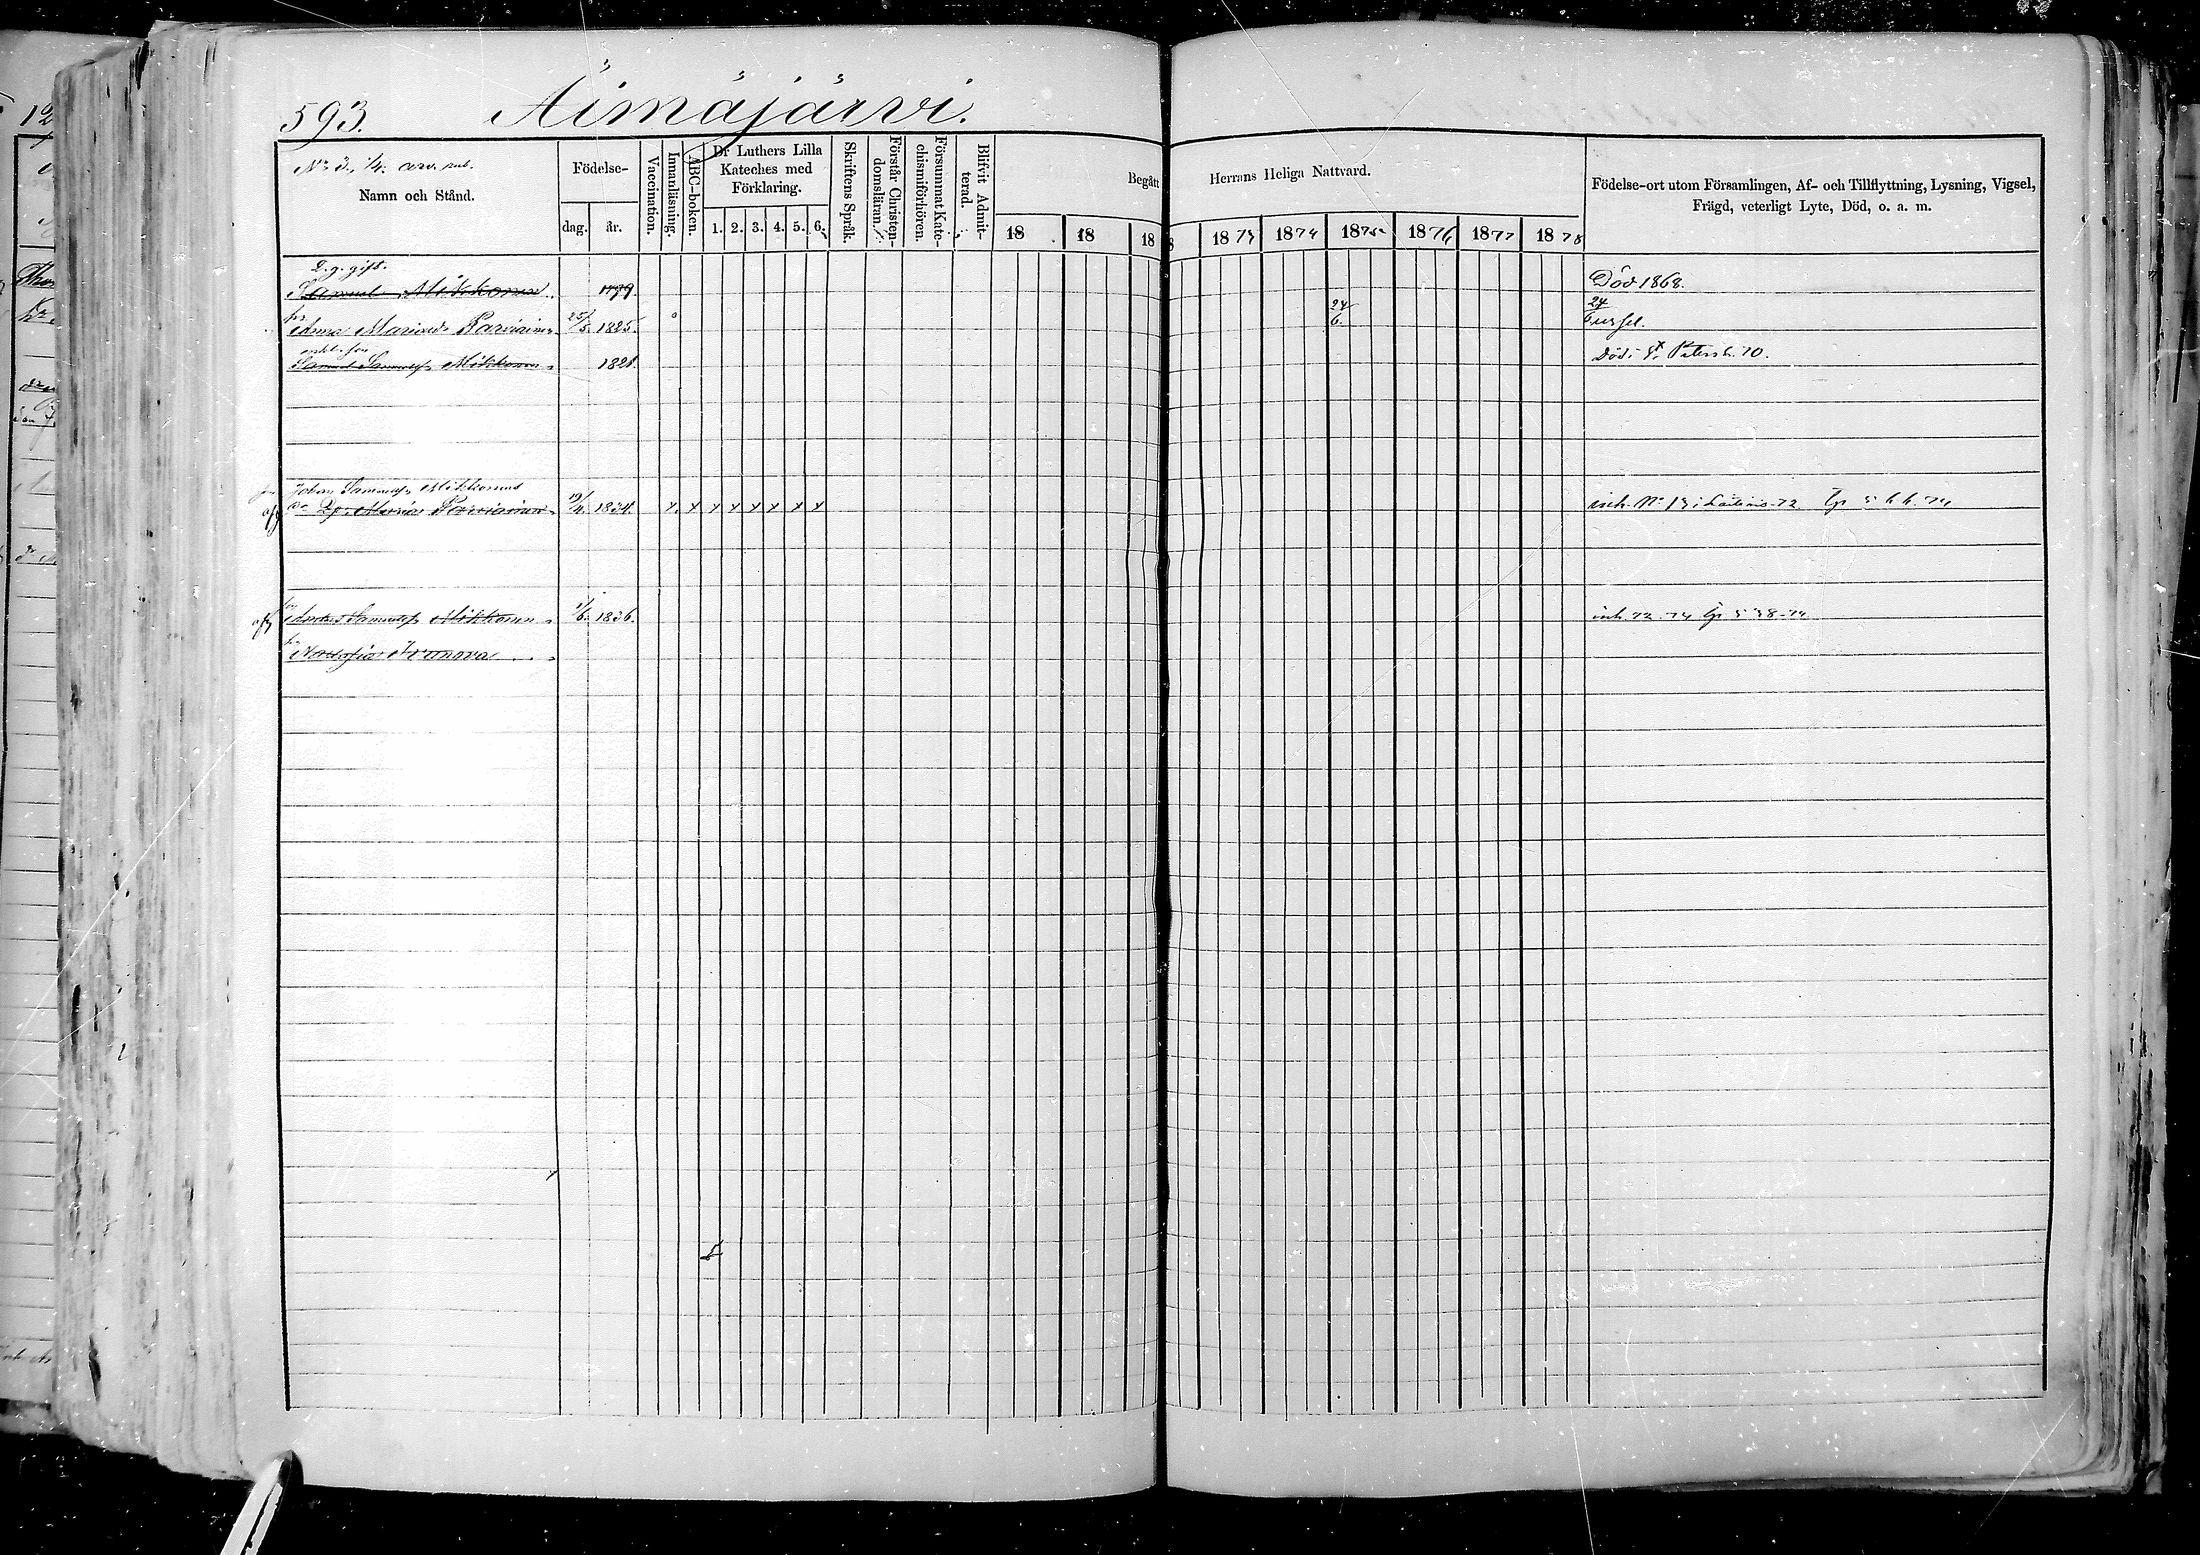 593. Äimäjärvi.
N:o 3. 1/4.
Namn och Stånd.
Födelse-
dag. år.
Vaccination.
Innanläsning.
ABC-boken.
Dr Luthers Lilla Kateches med Förklaring.
1. 2. 3. 4. 5. 6.
Skriftens Språk.
Förstår Christendomsläran.
Försummat Katechismiförhören.
Blifvit Admitterad
Begått Herrans Heliga Nattvard.
18 18 18 1873 1874 1875 1876 1877 1878
Födelse-ort utom Församlingen, Af- och Tillflyttning, Lysning, Vigsel,
Frägd, veterligt Lyte, Död, o. a. m.
Samuel Mikkonen 1779. Död 1868.
Anna Maria Parviainen 25/5. 1825. 24/6.
Samuel Samuelss. Mikkonen 1821. Död i St Petersb. 70.
Johan Samuelss Mikkonens
Maria Parviainen 19/4. 1834. x x x x x x x x
Anders Samuelss Mikkonen 1/6. 1836.
Ivanova